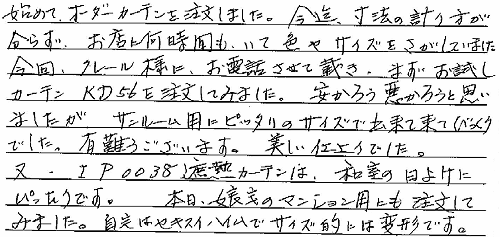 始めて、オーダーカーテンを注文しました。今迄、寸法の計り方が
分らず、お店に何時間も、いて色やサイズをさがしていました
今回、クレール様に、お電話させて戴き、まずお試し
カーテン KD56を注文してみました。安かろう悪かろうと思い
ましたが サンルーム用にピッタリのサイズで出来て来てバツグン
でした。有難うございます。美しい仕上りでした。
又、IP0038遮熱カーテンは、和室の日よけに
ぴったりです。本日、娘宅のマンション用にも注文して
みました。自宅はセキスイハイムでサイズ的には変形です。